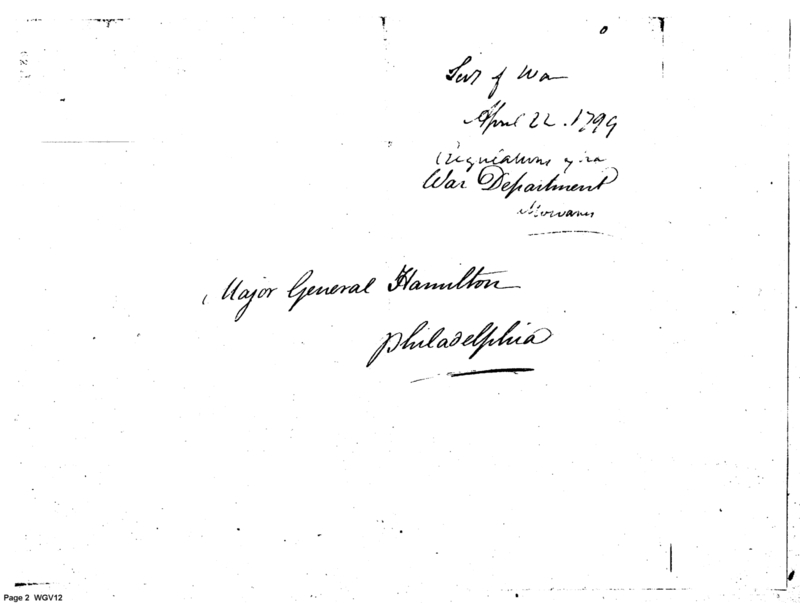 Secy of War
April 22. 1799
War Department
Major General Hamilton
Philadelphia
Page 2 WGV12